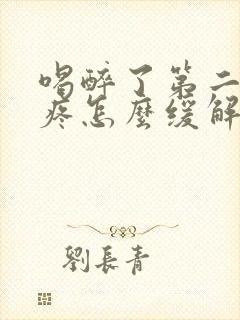 喝醉了第二
疼怎麼緩解
劉長青